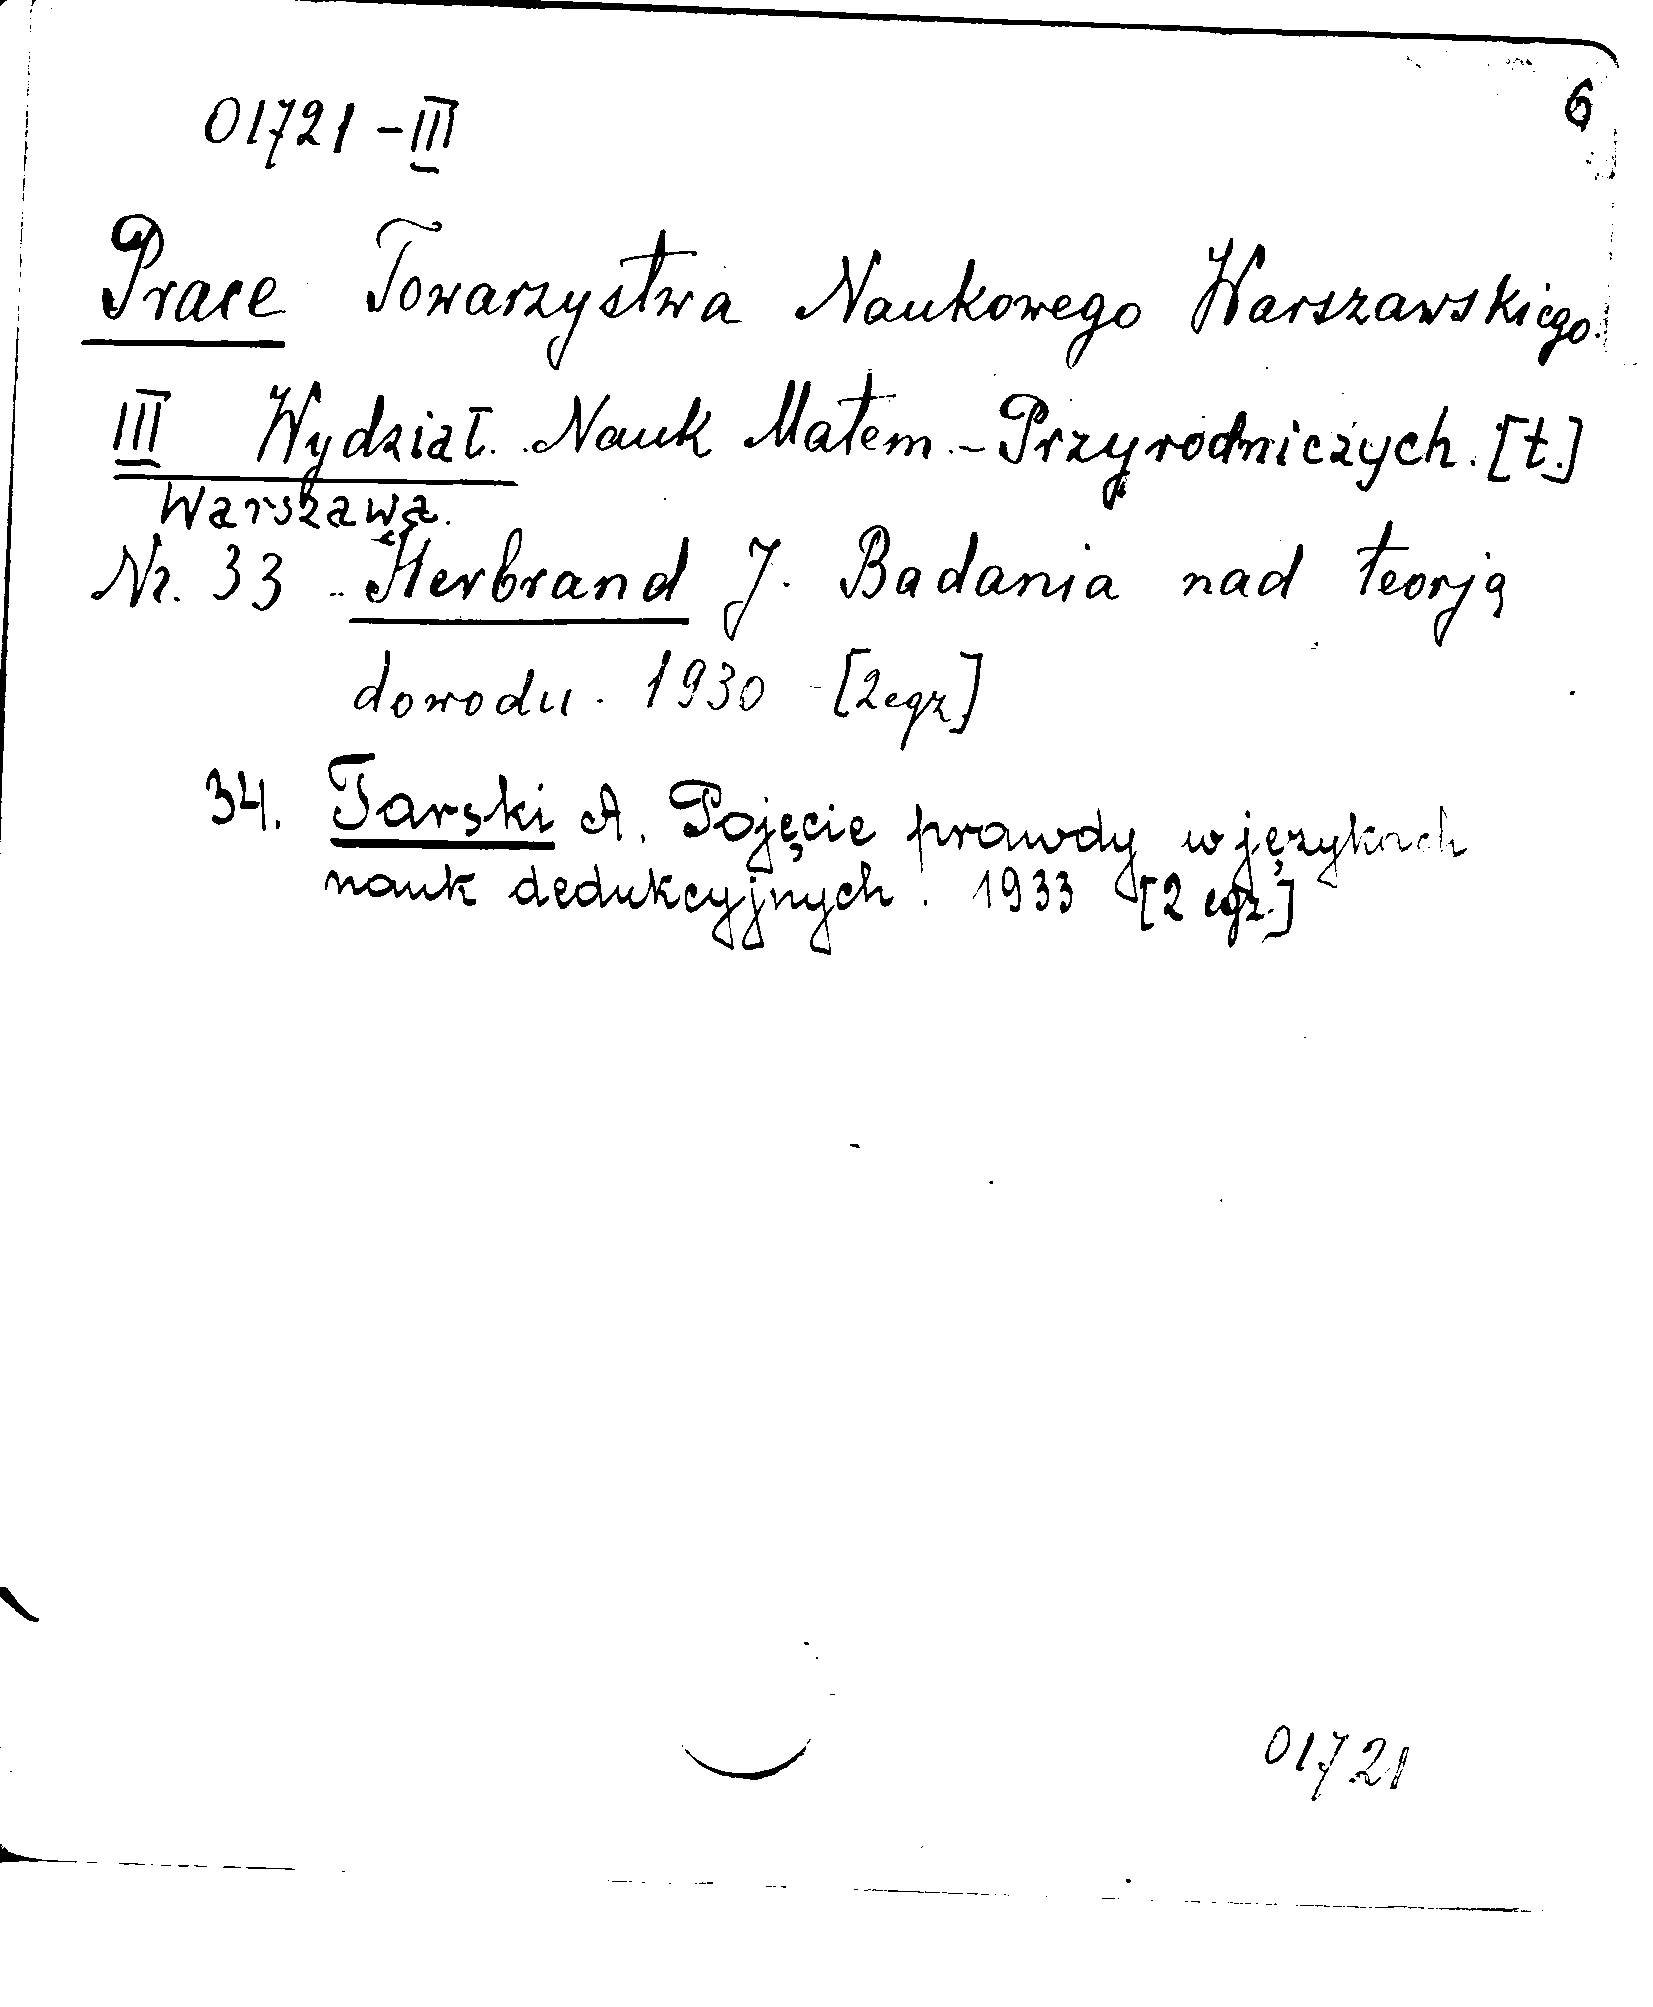 01721-III
6
Prace Towarzystwa Naukowego Warszawskiego.
III Wydział. Nauk Matem.-Przyrodniczych. [t.]
Warszawa.
Nr. 33 Herbrand J. Badania nad teorją
dowodu. 1930 - [2egz]
34. Tarski A. Pojęcie prawdy w językach
nauk dedukcyjnych. 1933 [2 egz.]
01721